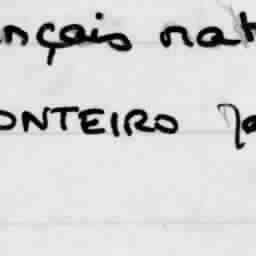 nçais nat
ONTEIRO Ja